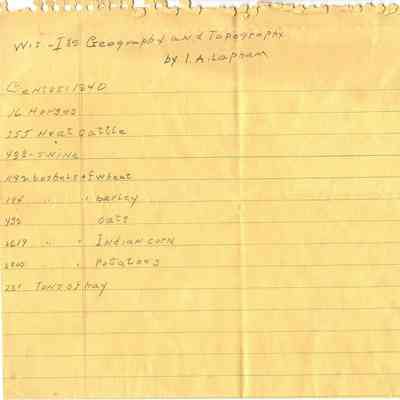 Wis - Its Geography and Topography
by I. A. Lapham
Census: 1840
16 Horses
255 Neat Cattle
488 - Swine
1192 bushels of Wheat
184 " " barley
992 oats
2619 " " Indian corn
2800 " " Potatoes
231 Tons of hay